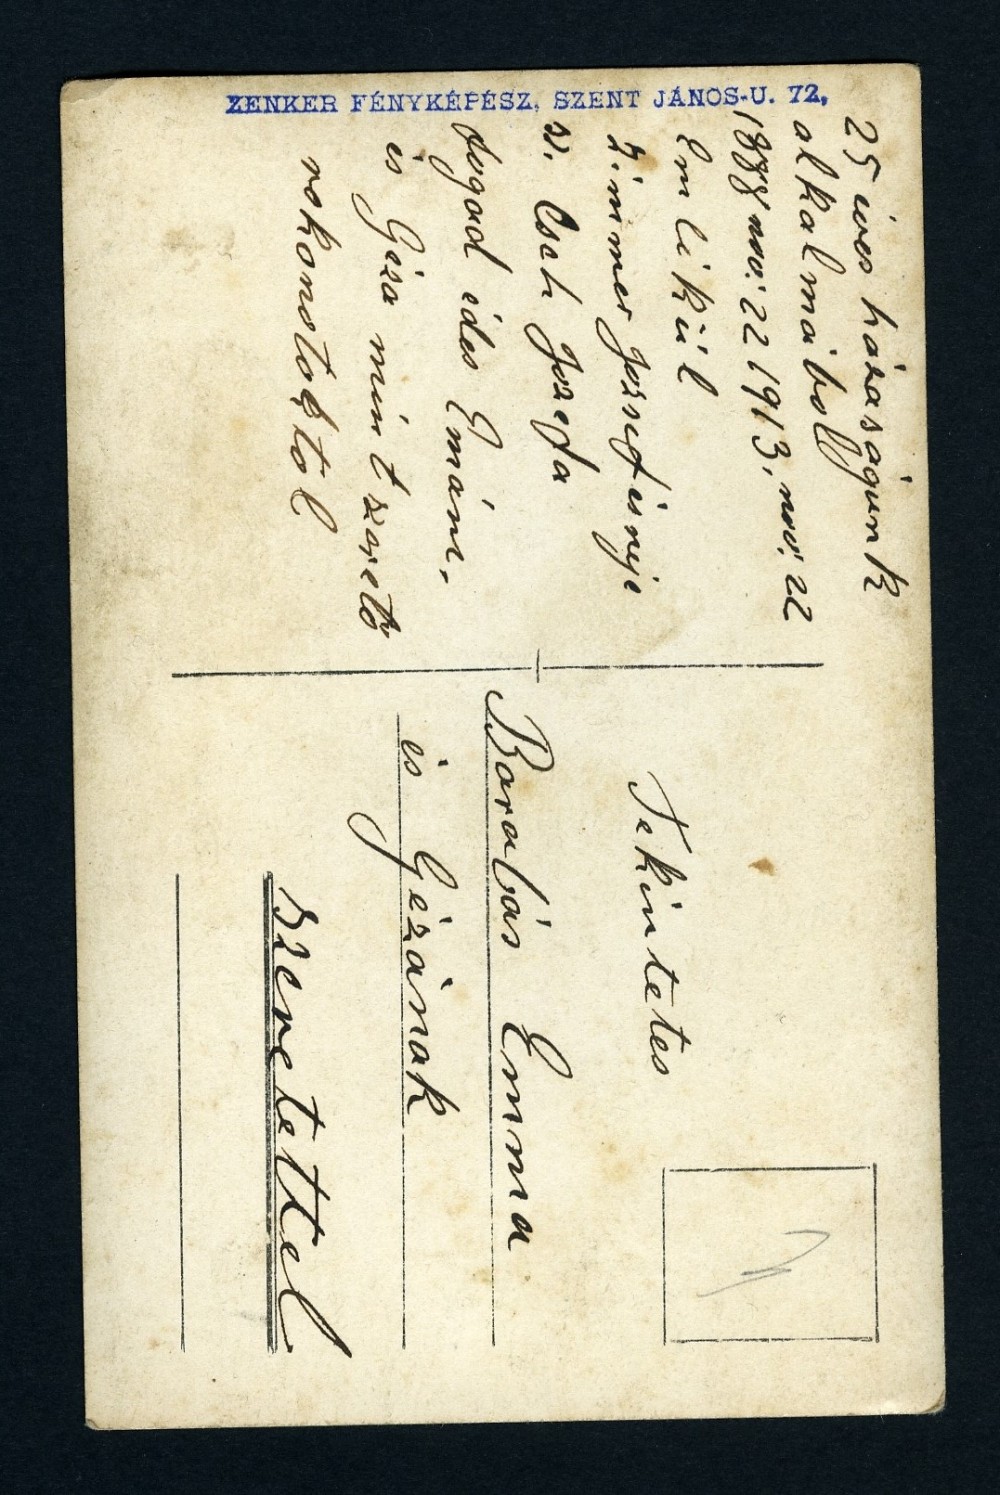 ZENKER FÉNYKÉPÉSZ, SZENT JÁNOS-U. 72,
25 éves házaságunk
alkalmábol
1888 nov. 22 1913. nov. 22
Emlékül
Zimmer Jozsef és neje
sz. Cseh Jozefa
fogad édes Emám.
és Géza mint szerető
rokonstoktol
Tekintetes
Barabás Emma
és Gézának
szeretettel